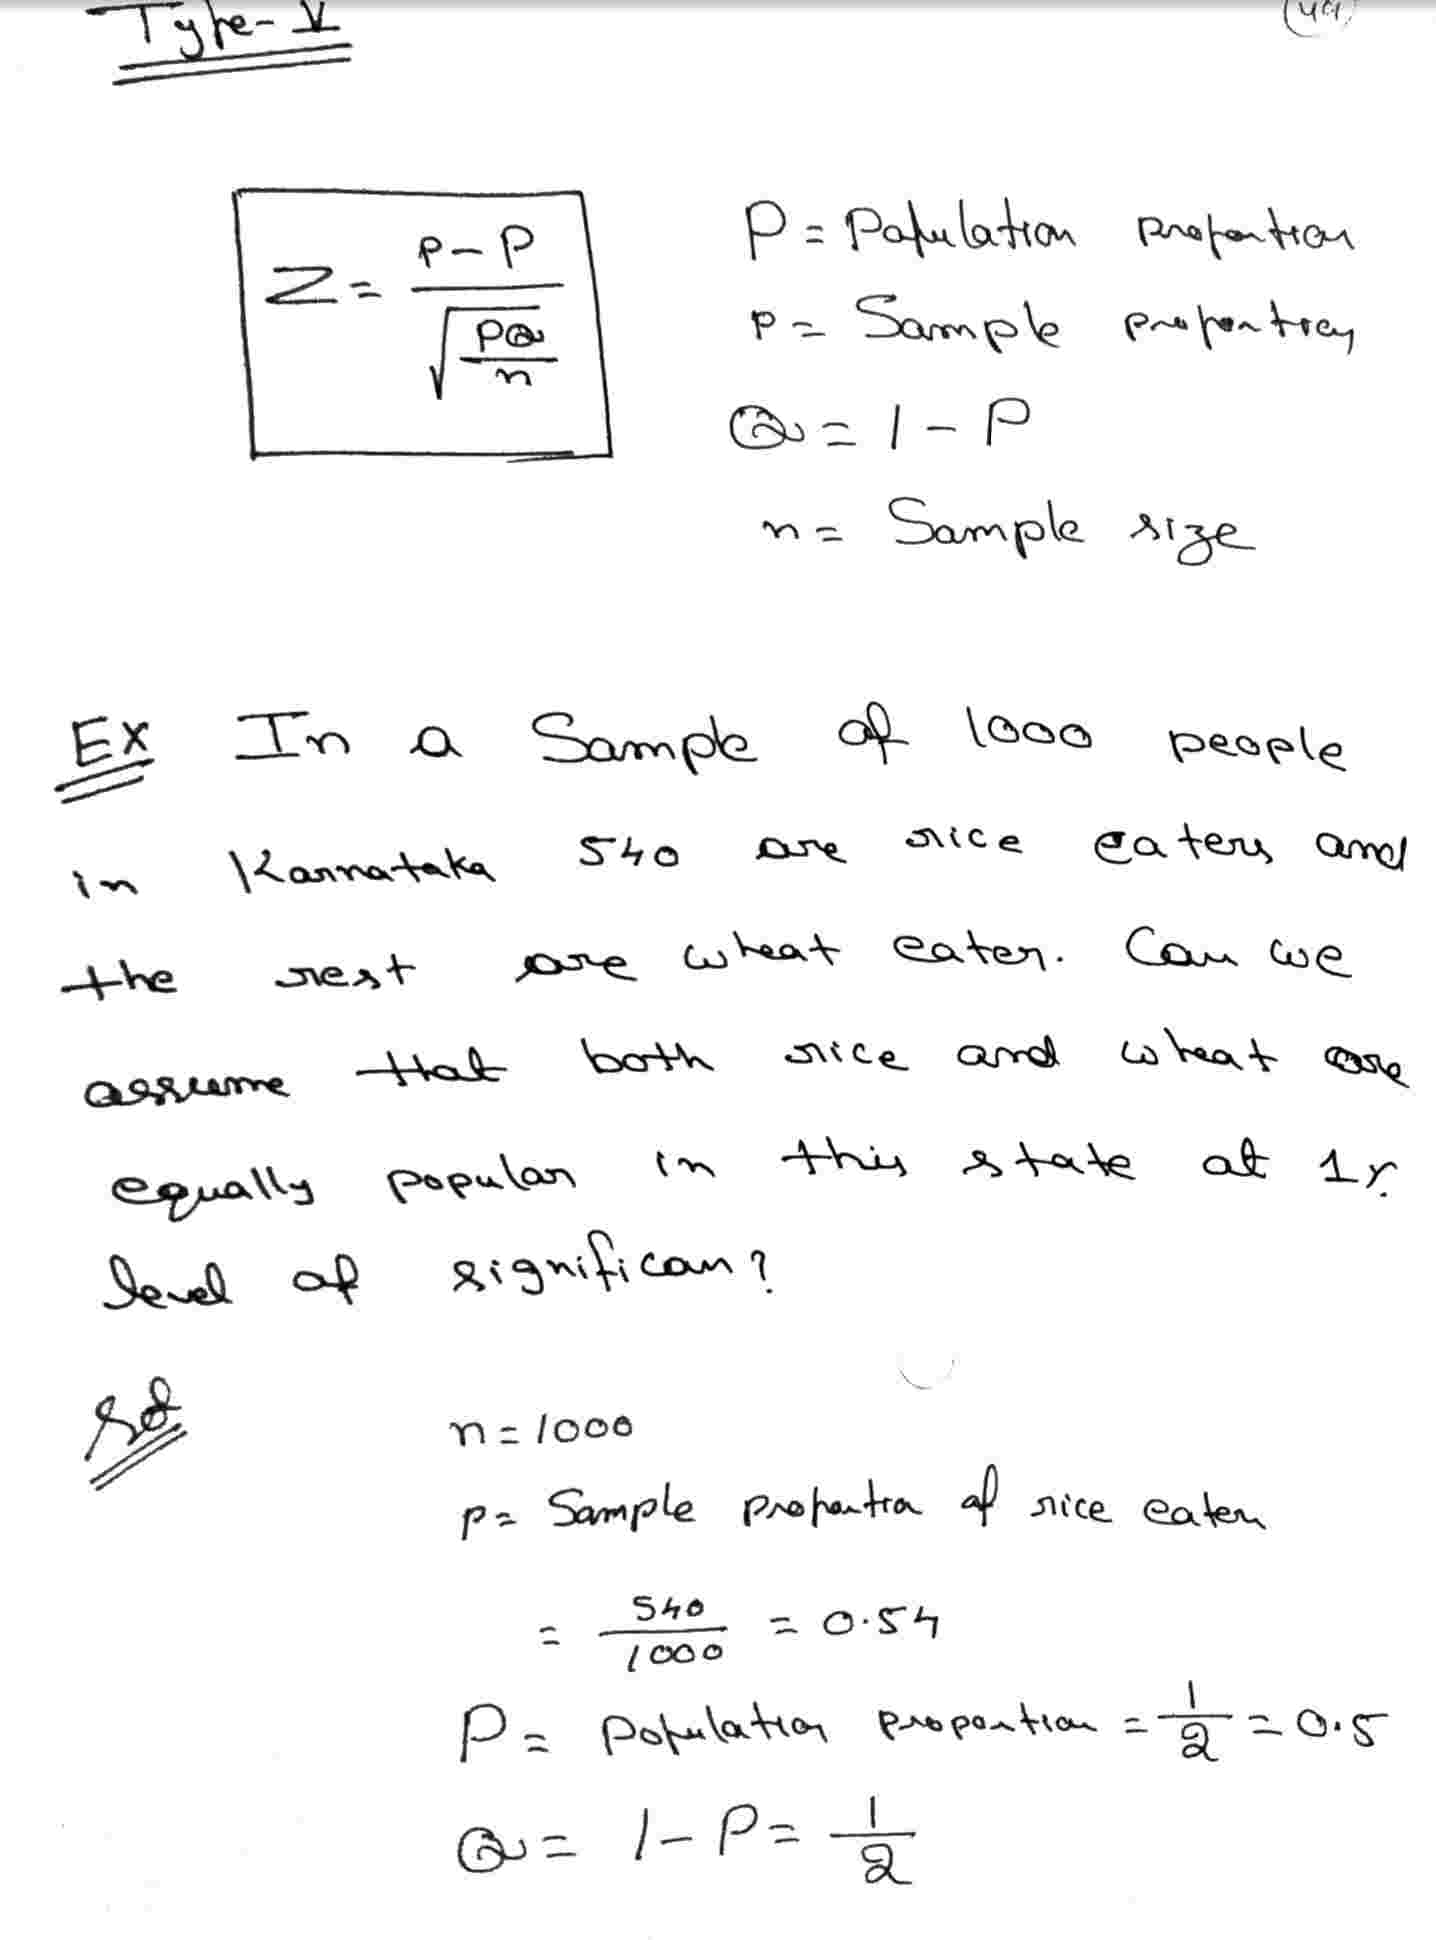 Type-V
(49)
Z = p-P / √(PQ/n)
P = Population proportion
p = Sample proportion
Q = 1 - P
n = Sample size
Ex In a Sample of 1000 people
in Karnataka 540 are rice eaters and
the rest are wheat eater. Can we
assume that both rice and wheat are
equally popular in this state at 1%
level of significan?
Sol
n = 1000
p = Sample proportion of rice eater
= 540/1000 = 0.54
P = Population proportion = 1/2 = 0.5
Q = 1 - P = 1/2